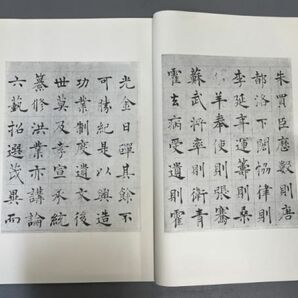 朱買臣歷數則唐
都洛下閎協律則
李延年運籌則桑
弘羊奉使則張騫
蘇武將率則衛青
霍去病受遺則霍
光金日磾其餘不
可勝紀是以興造
功業制度遺文後
世莫及孝宣承統
纂修洪業亦講論
六藝招選茂異而